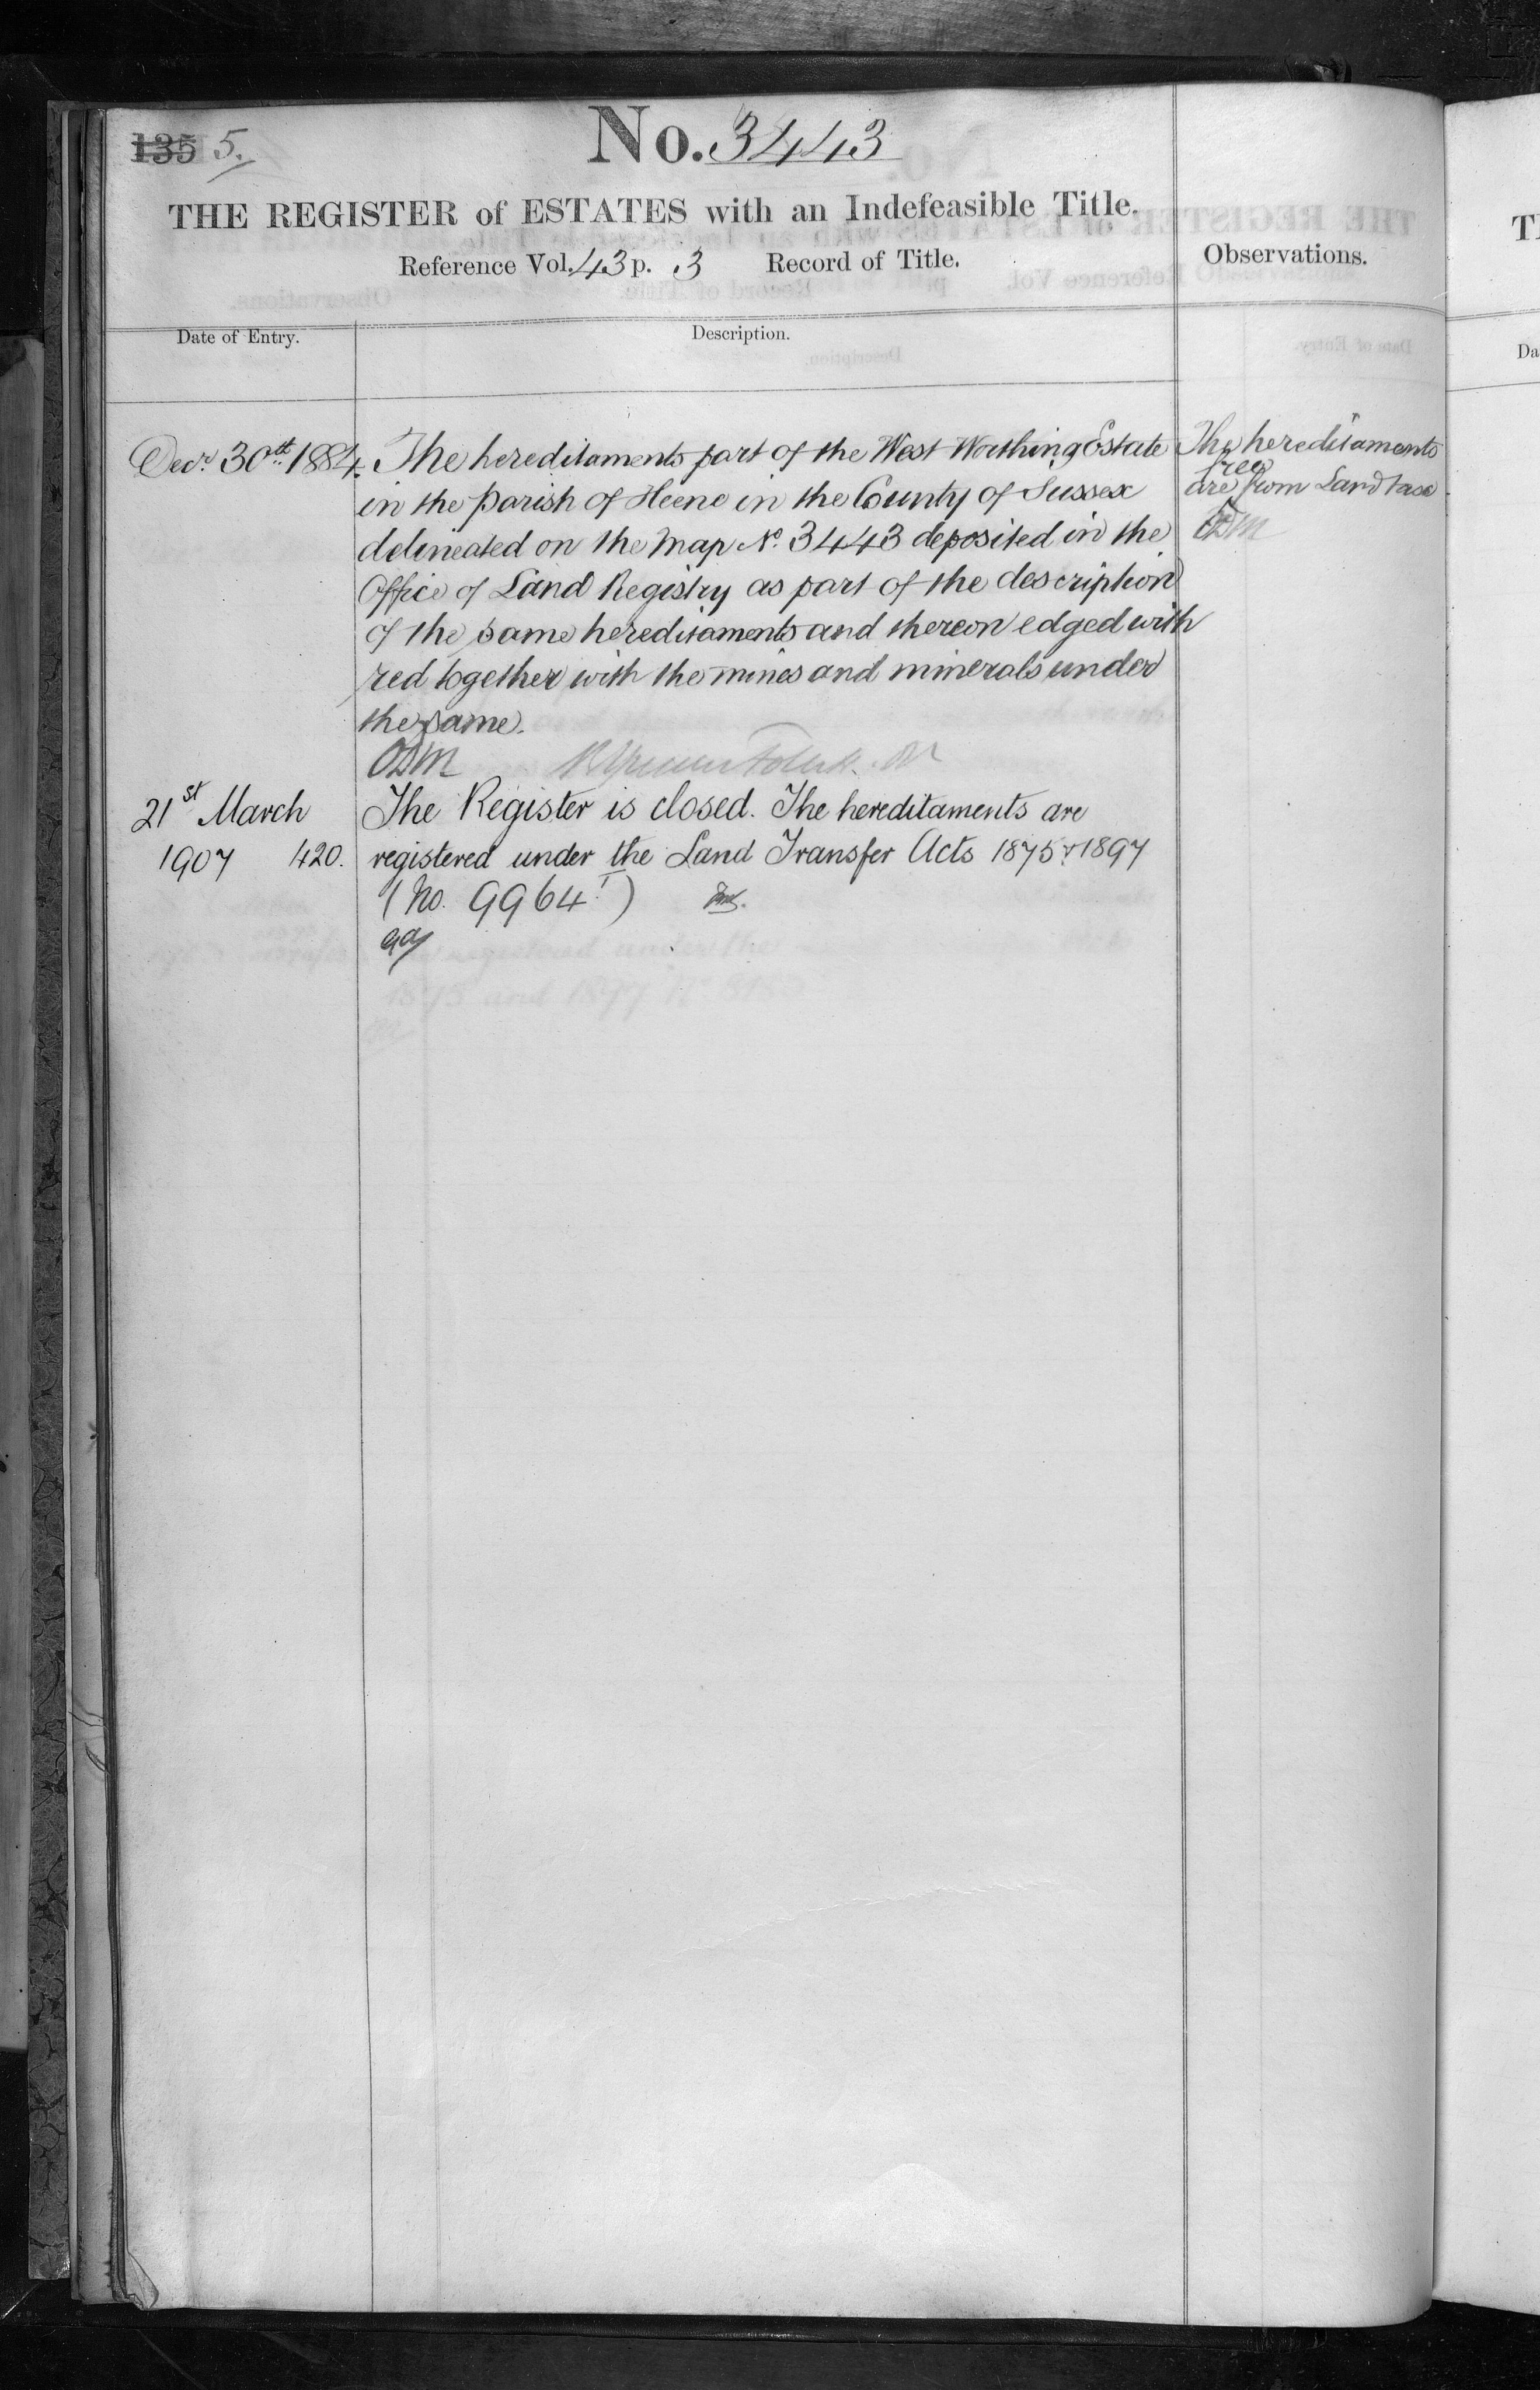 135 5.
No. 3443
THE REGISTER of ESTATES with an Indefeasible Title.
Reference Vol. 43 p. 3 Record of Title.
Observations.
Date of Entry.
Description.
Decr. 30th 1884.
The hereditaments part of the West Worthing Estate
in the Parish of Heene in the County of Sussex
delineated on the Map No. 3443 deposited in the
Office of Land Registry as part of the description
of the same hereditaments and thereon edged with
red together with the mines and minerals under
the same.
The hereditaments
are free from Land tax.
21st March
1907 420.
The Register is closed. The hereditaments are
registered under the Land Transfer Acts 1875 & 1897
(No. 9964)
T
Da